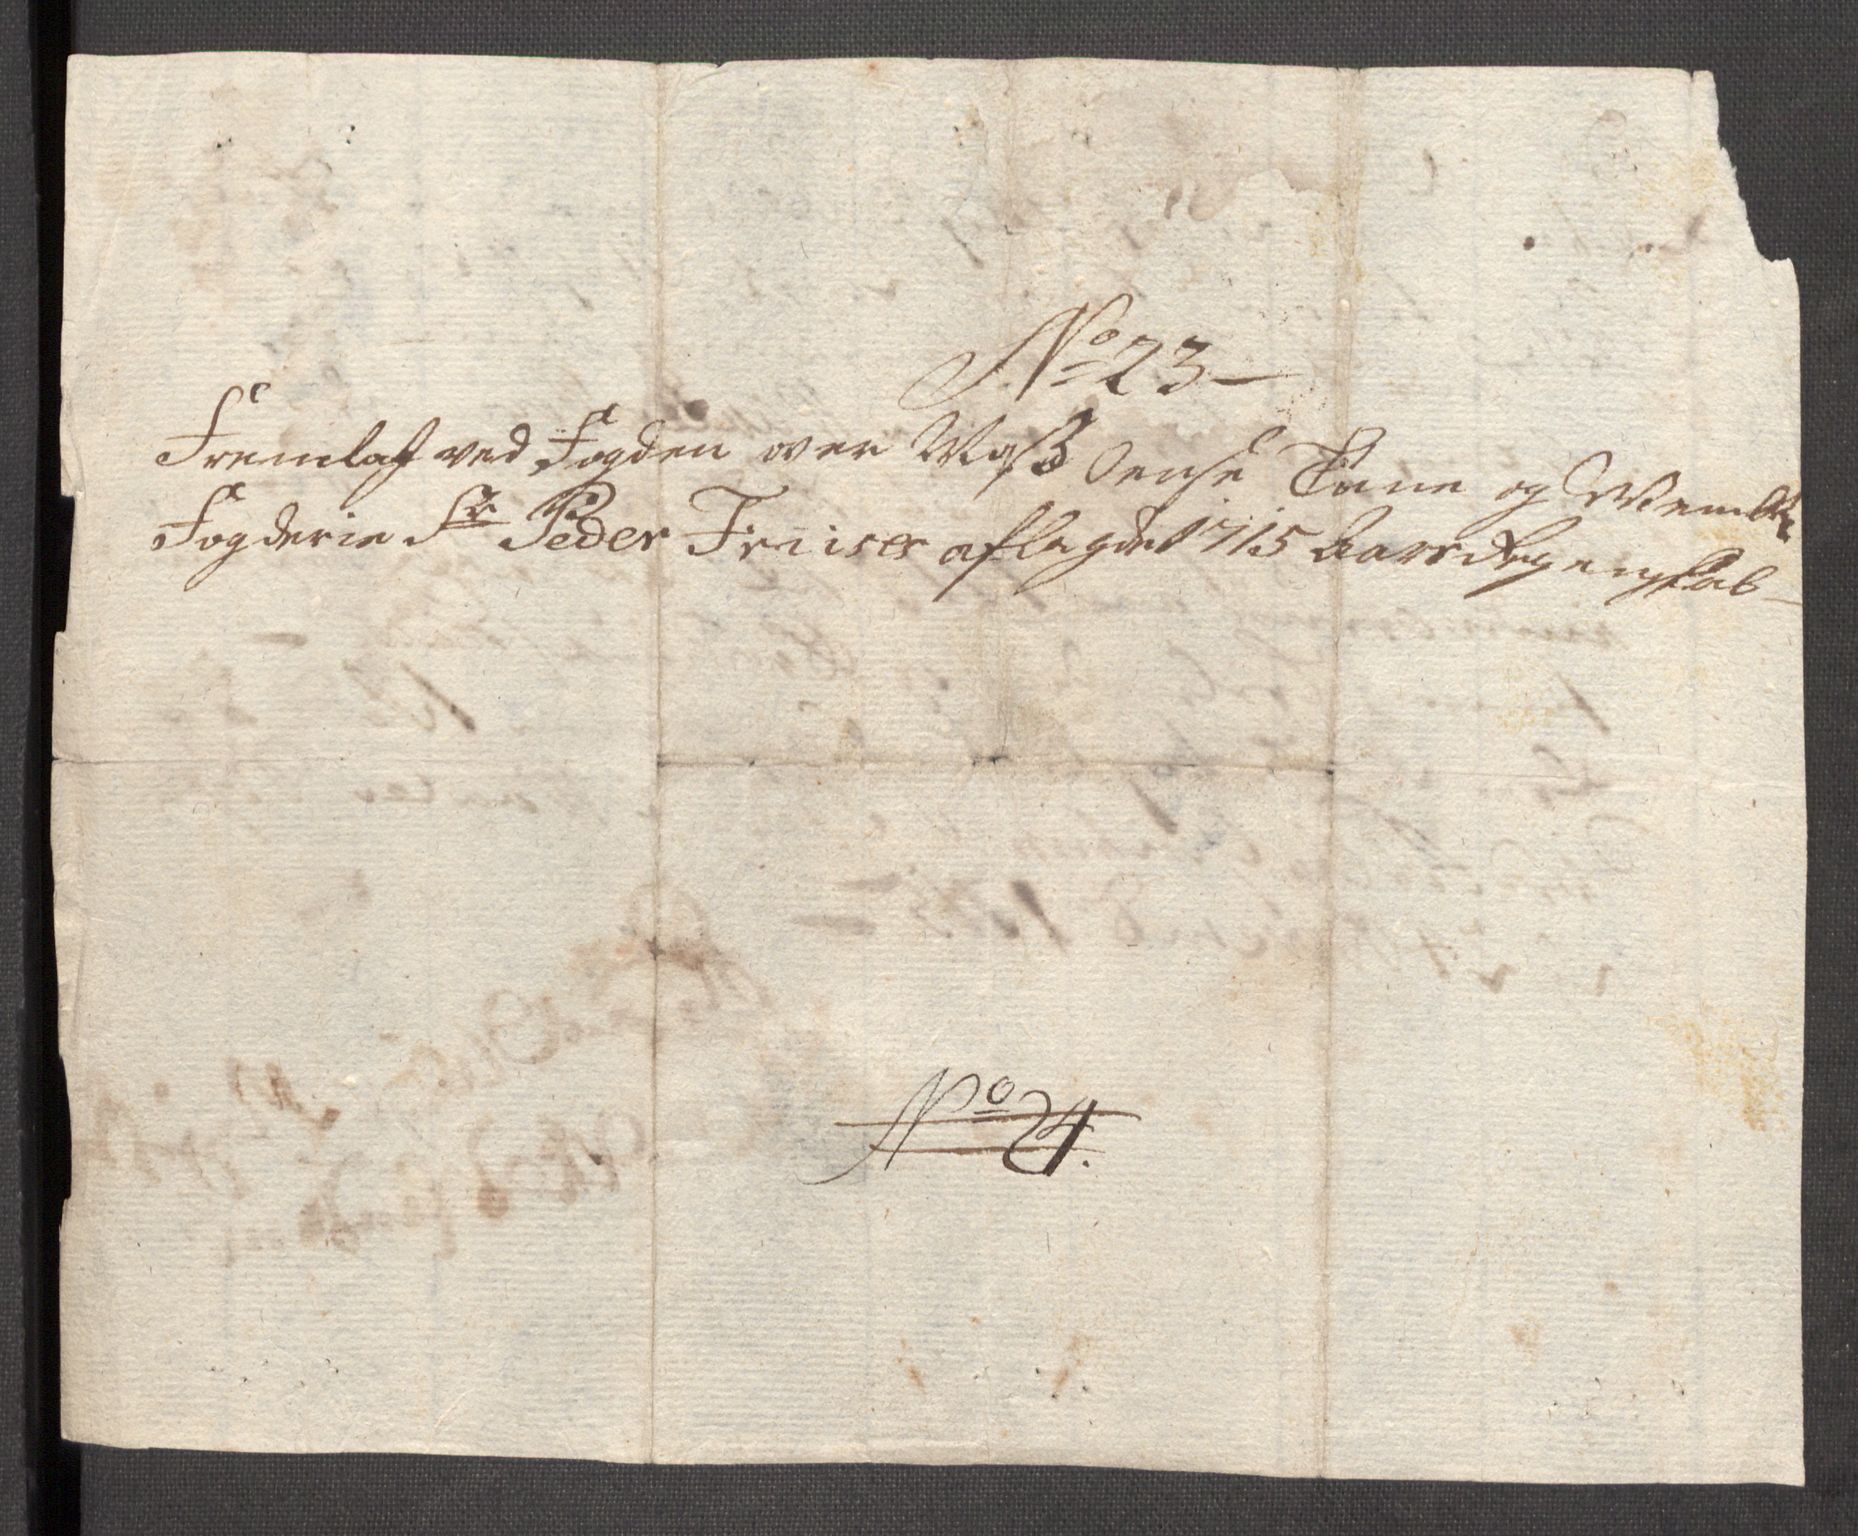 No 23
Fremlagt ved Fogden over Moß Onsøe Tune og Wembe
Fogderie Sr Peder Friises aflagde 1715 Aars Regenskab
No 24.